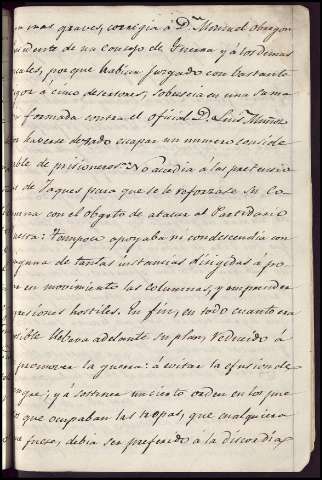 mas graves, corrigia á Dn. Manuel Obregon
de un Consejo de Guerra y á los demas
cales, porque habian juzgado con bastante
gor á cinco desertores; sobuscia en una suma
formada contra el oficial Dn. Luis Muñoz
haverse dexado escapar un numero conside
ble de prisioneros. No acedia á las pretensio
de Jaques para que se le reforzase su Co
con el objeto de atacar al Partidario
erra: tampoco apoyaba ni condescendia con
guna de tantas instancias dirigidas á po
en movimiento las columnas, y emprender
resiones hostiles. En fin, en todo cuanto era
sible llebava adelante su plan, reducido á
promover la guerra: á evitar la efusion de
ngre; y á sostener un cierto orden en los pue
que ocupaban las tropas, que cualquiera
fuese, debia ser preferido á la discordia,